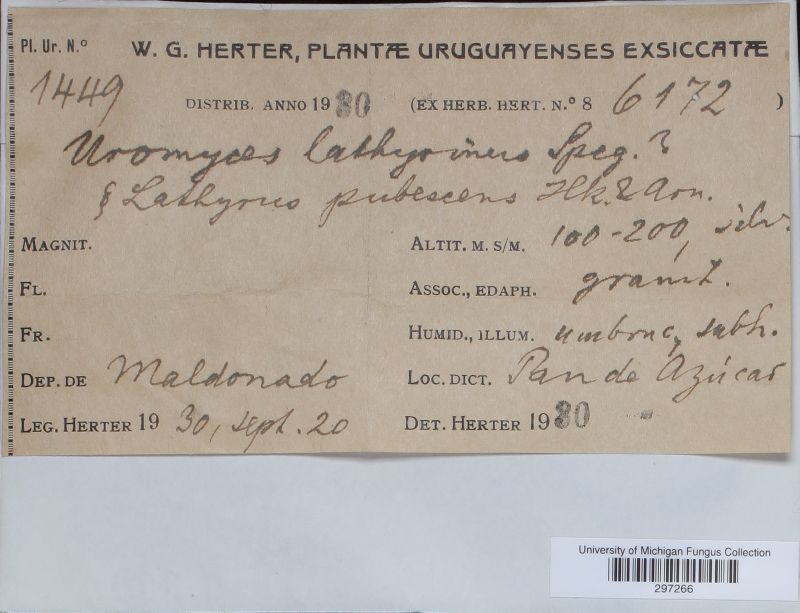 Pl. Ur. N.º W. G. HERTER, PLANTÆ URUGUAYENSES EXSICCATÆ
1449 DISTRIB. ANNO 1930 (EX HERB. HERT. N.º 8 6172 )
Uromyces lathyrinus Speg. ?
§ Lathyrus pubescens Hk. & Arn.
MAGNIT. ALTIT. M. S/M. 100-200, silv.
FL. ASSOC., EDAPH. granit.
FR. HUMID., ILLUM. subh.
DEP. DE Maldonado LOC. DICT. Pan de Azúcar
LEG. HERTER 19 30, sept. 20 DET. HERTER 1930
University of Michigan Fungus Collection
297266